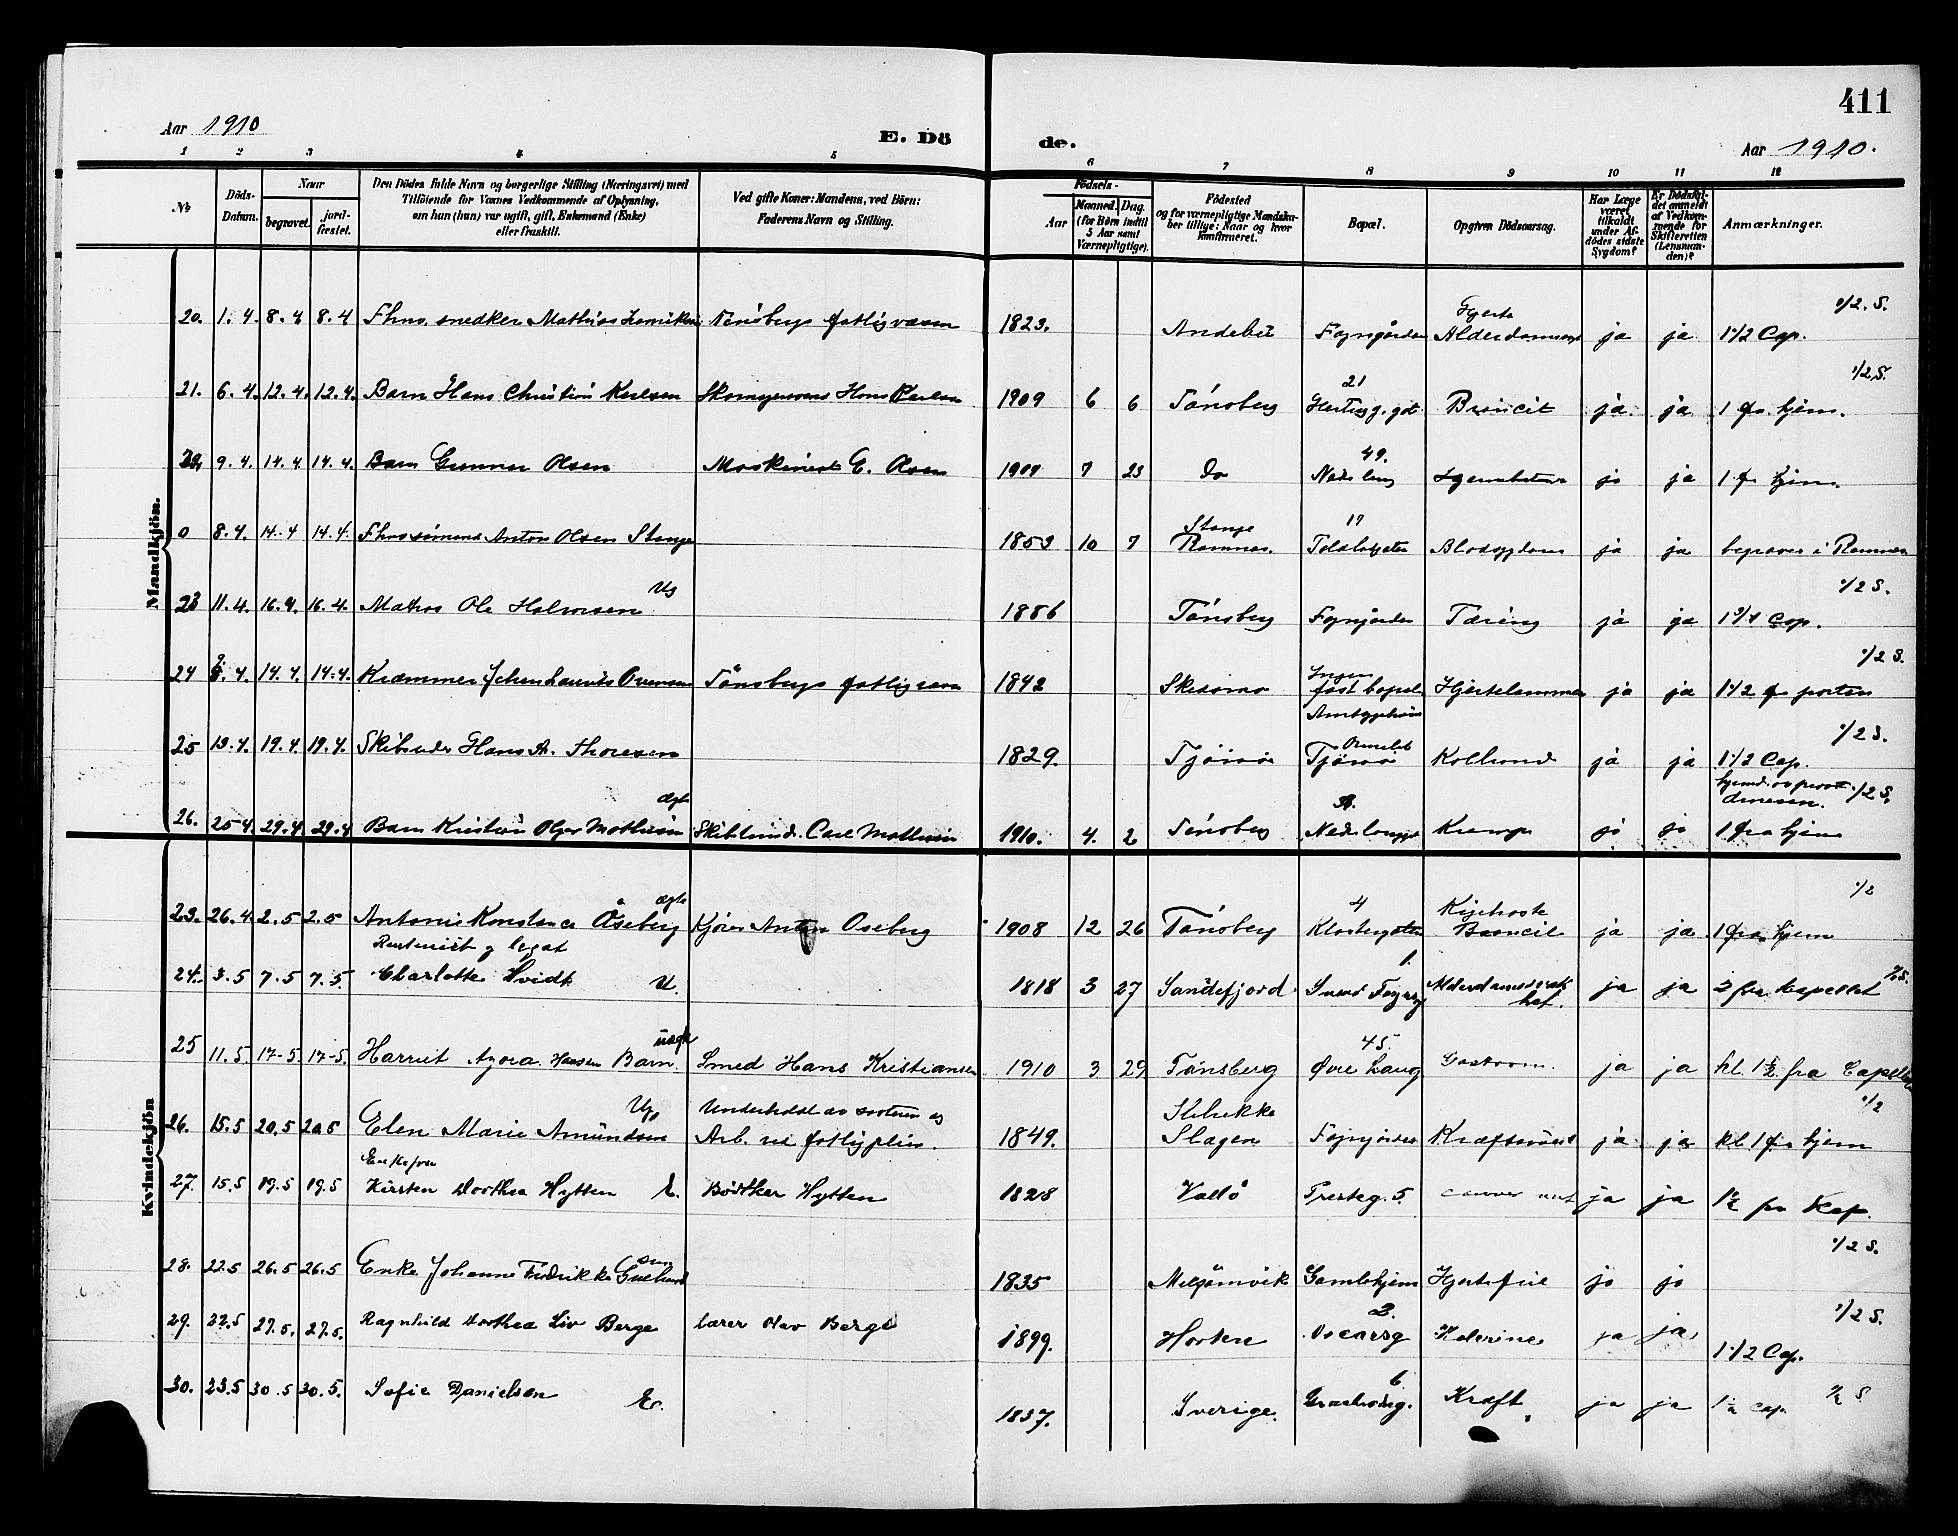 411
Aar 1910
E. Dö
de.
Aar 1910.
1 2 3 4 5 6 7 8 9 10 11 12
№
Döds-
Datum.
Naar
begravet.
jord-
fæstet.
Den Dödes fulde Navn og borgerlige Stilling (Næringsvei) med
Tilföiende for Voxnes Vedkommende af Oplysning,
om han (hun) var ugift, gift, Enkemand (Enke)
eller fraskilt.
Ved gifte Koner: Mandens, ved Börn:
Faderens Navn og Stilling.
Födsels-
Aar
Maaned. Dag.
(for Börn indtil
5 Aar samt
Værnepligtige).
Födested
og for værnepligtige Mandska-
ber tillige: Naar og hvor
konfirmeret.
Bopæl.
Opgiven Dödsaarsag.
Har Læge
været
tilkaldt
under Af-
dödes sidste
Sygdom?
Er Dödsfal-
det anmeldt
af Vedkom-
mende for
Skifteretten
(Lensman-
den)?
Anmærkninger.
Mandkjön.
20. 1. 4. 8. 4 8. 4 Fhv. snedker Mathias Tønsbergs fattigvæsen 1823. Andebu Alderdom ja ja 1 1/2 Cap. 1/2. S.
21. 6. 4. 12. 4. 12. 4. Barn Hans Christian Karlsen Hans Karlsen 1909 6 6 Tønsberg 21 ja ja 1 fra hjem. 1/2 S.
22. 9. 4. 14. 4 14. 4. Barn Gunnar Olsen Maskinist E. Olsen 1909 7 23 Do 49. ja ja 1 fr hjem.
0 8. 4. 14. 4 14. 4. Anton Olsen Stange 1853 10 7 Stange Ramnes. 17 ja ja begraves i Ramnes
23 11. 4. 16. 4. 16. 4. Matros Ole Halvorsen Ug 1856 Tønsberg Tæring ja ja 1 3/4 Cap. 1/2 S.
24 9. 4. 14. 4. 14. 4. Kræmmer Johan Laurits Tønsbergs fattigvæsen 1842 Ingen fast bopæl ja ja 1 1/2 fr porten 1/2 S.
25 13. 4. 19. 4. 19. 4. Hans A. Thoresen 1829. Tjømø Tjømø ja ja 1 1/2 Cap. 1/2 S.
26. 25 4. 29. 4 29. 4 Barn Kristian Mathisen ægte Carl Mathisen 1910. 4. 2 Tønsberg Krampe ja ja 1 fra hjem 1/2 S.
Kvindekjön
23. 26. 4 2. 5 2. 5 Antonie Konstance Åseberg ægte Kjører Anton Oseberg 1908 12 26 Tønsberg Klostergaten 4 Kighoste Broncit ja ja 1 fra hjem 1/2
24. 3. 5 7. 5 7. 5. Charlotte Hvidt U. 1818 3 27 Sandefjord 1. ja ja 2 fra kapellet
25 11. 5. 17-5. 17-5. Harriet Agora Hansen Barn. uægte Smed Hans Kristiansen 1910 3 29 Tønsberg Øvre Lang 45. ja ja kl. 1 1/2 fra Capellet
26. 15. 5 20. 5 20 5 Elen Marie Amundsen Ug. Underholdt av søsteren og Arb. ved fattigplein. 1849. Slagen ja ja kl. 1 fra hjem 1/2
27. 15. 5 19. 5 19. 5 Enkefru Kirsten Dorthea Hytten E. Bødtker Hytten 1828 Valø Presteg. 5. ja ja 1 1/2 fra Kap.
28. 22. 5 26. 5 26. 5 Enke Johanne Fredrikke 1835 Gamlehjem Hjertefeil ja ja 1/2 S.
29. 22. 5 27. 5. 27. 5. Ragnhild Dorthea Liv Berge Lærer Olav Berge 1899. Horten Oscarsg ja ja 1 1/2 Cap. 1/2 S.
30. 23. 5 30. 5 30. 5. Sofie Danielsen E. 1837. Sverige. 6 Kræft ja ja 1 1/2 Cap. 1/2 S